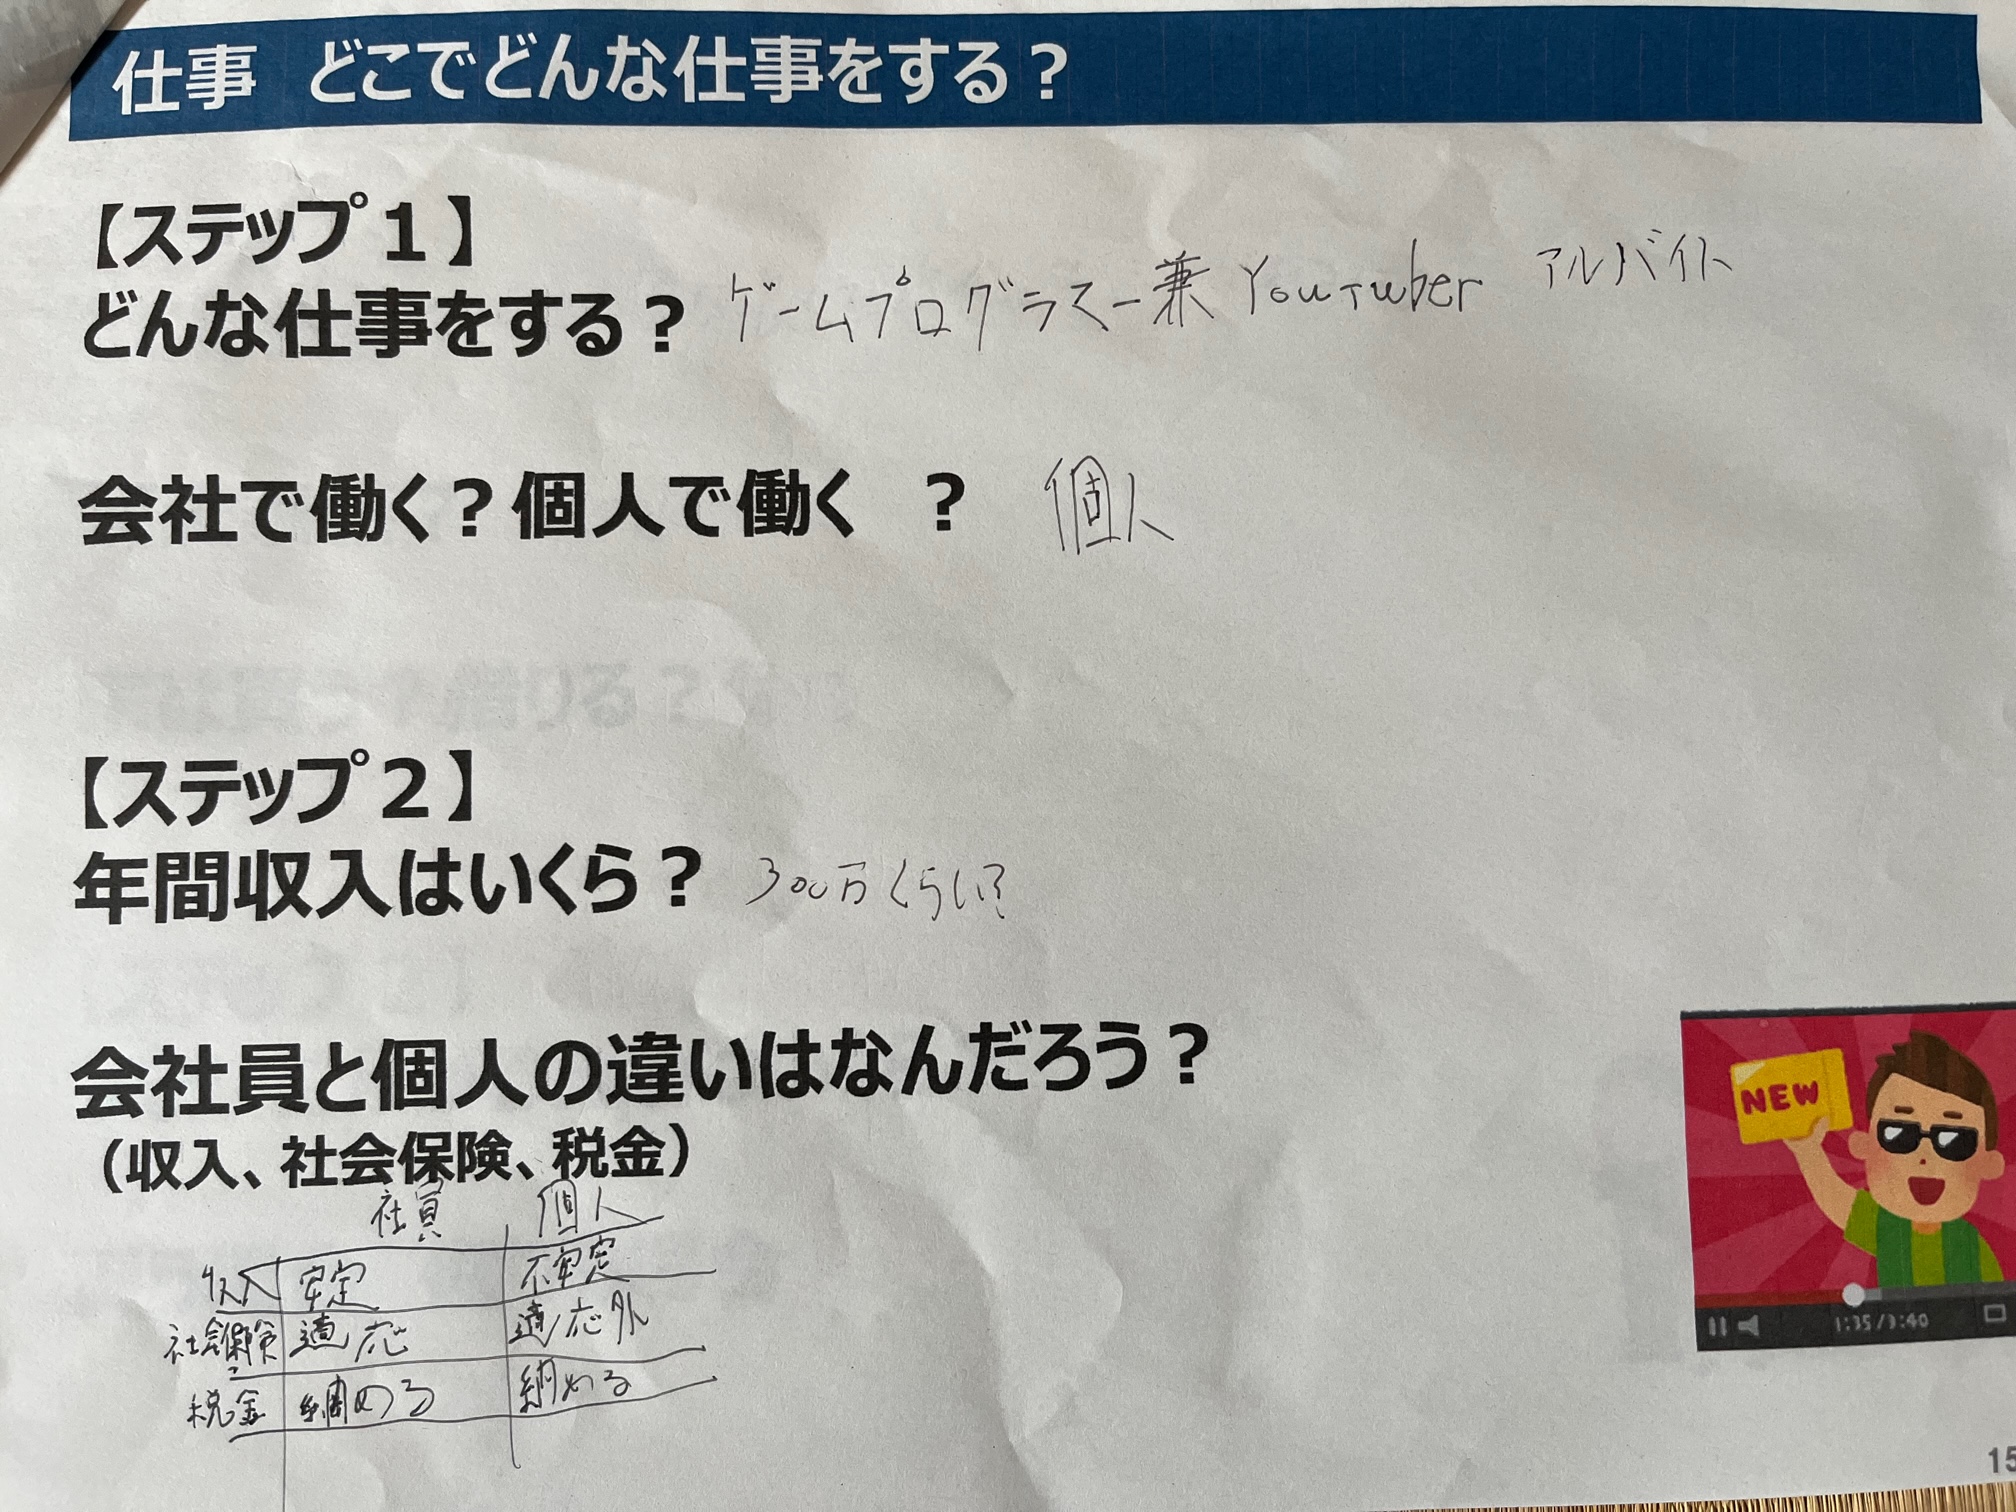 仕事 どこでどんな仕事をする？
【ステップ１】
どんな仕事をする？ ゲームプログラマー兼YouTuber アルバイト
会社で働く？個人で働く ？ 個人
【ステップ２】
年間収入はいくら？ 300万くらい？
会社員と個人の違いはなんだろう？
（収入、社会保険、税金）
社員 個人
収入 安定 不安定
社会保険 適応 適応外
税金 納める 納める
NEW
1:35/3:40
15